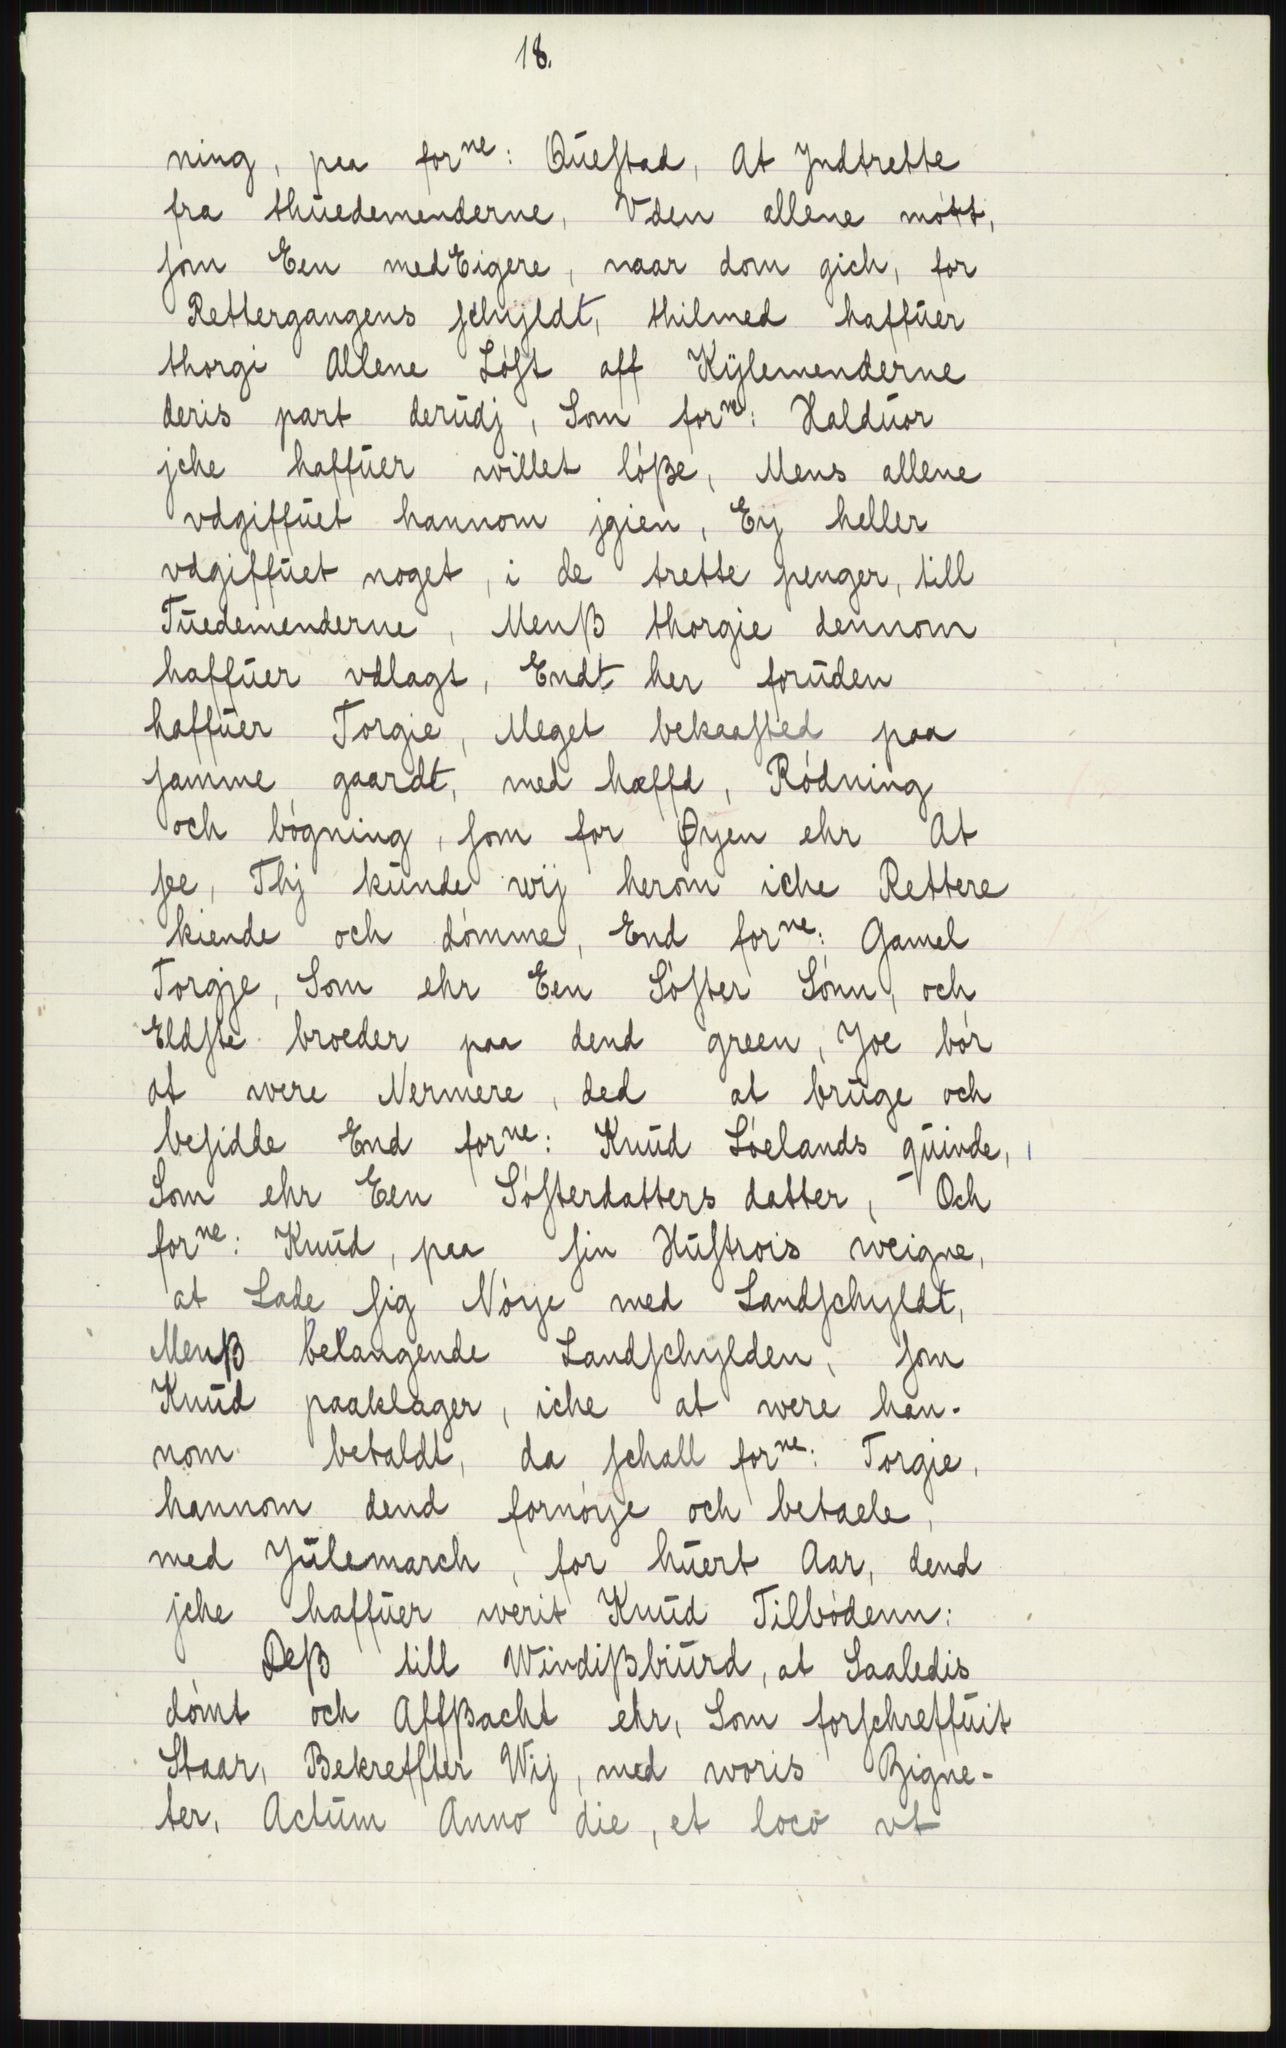 18.
ning, paa forne: Queſtad, At Jndtrette
fra thuedemenderne, Vden allene mött,
ſom Een medEigere, naar dom gich, for
Rettergangens ſchÿldt, thilmed haffuer
thorgi Allene Löſt aff Kÿlemenderne
deris part derudj, Som forne: Halduor
jche haffuer willet löße, Mens allene
vdgiffuet hannom jgien, Eÿ heller
vdgiffuet noget, i de trette penger, till
Tuedemenderne, Menß thorgie dennom
haffuer vdlagt, Endt her foruden
haffuer Torgie, Meget bekaaſted paa
ſamme gaardt, med hæffd, Rödning
och bögning, ſom for Øyen ehr At
ſee, Thj kunde wij herom iche Rettere
kiende och dömme, End forne: Gamel
Torgje, Som ehr Een Söſter Sönn, och
Eldſte broeder paa dend green, Joe bör
at were Nermere, ded at bruge och
beſidde End forne: Knud Löelands quinde,
Som ehr Een Söſterdatters datter, Och
forne: Knud, paa ſin Huſtrois weigne,
at Lade ſig Nöÿe med Landſchyldt,
Menß belangende Landſchylden, ſom
Knud paaklager, iche at were han-
nom betaldt, da ſchall forne: Torgie,
hannom dend fornöÿe och betaele,
med Julemarch, for huert Aar, dend
jche haffuer werit Knud Tilbödenn:
Deß till Windißbiurd, at Saaledis
dömt och Affßacht ehr, Som forſchreffuit
Staar, Bekreffter Wij, med woris Zigne-
ter, Actum Anno die, et loco vt